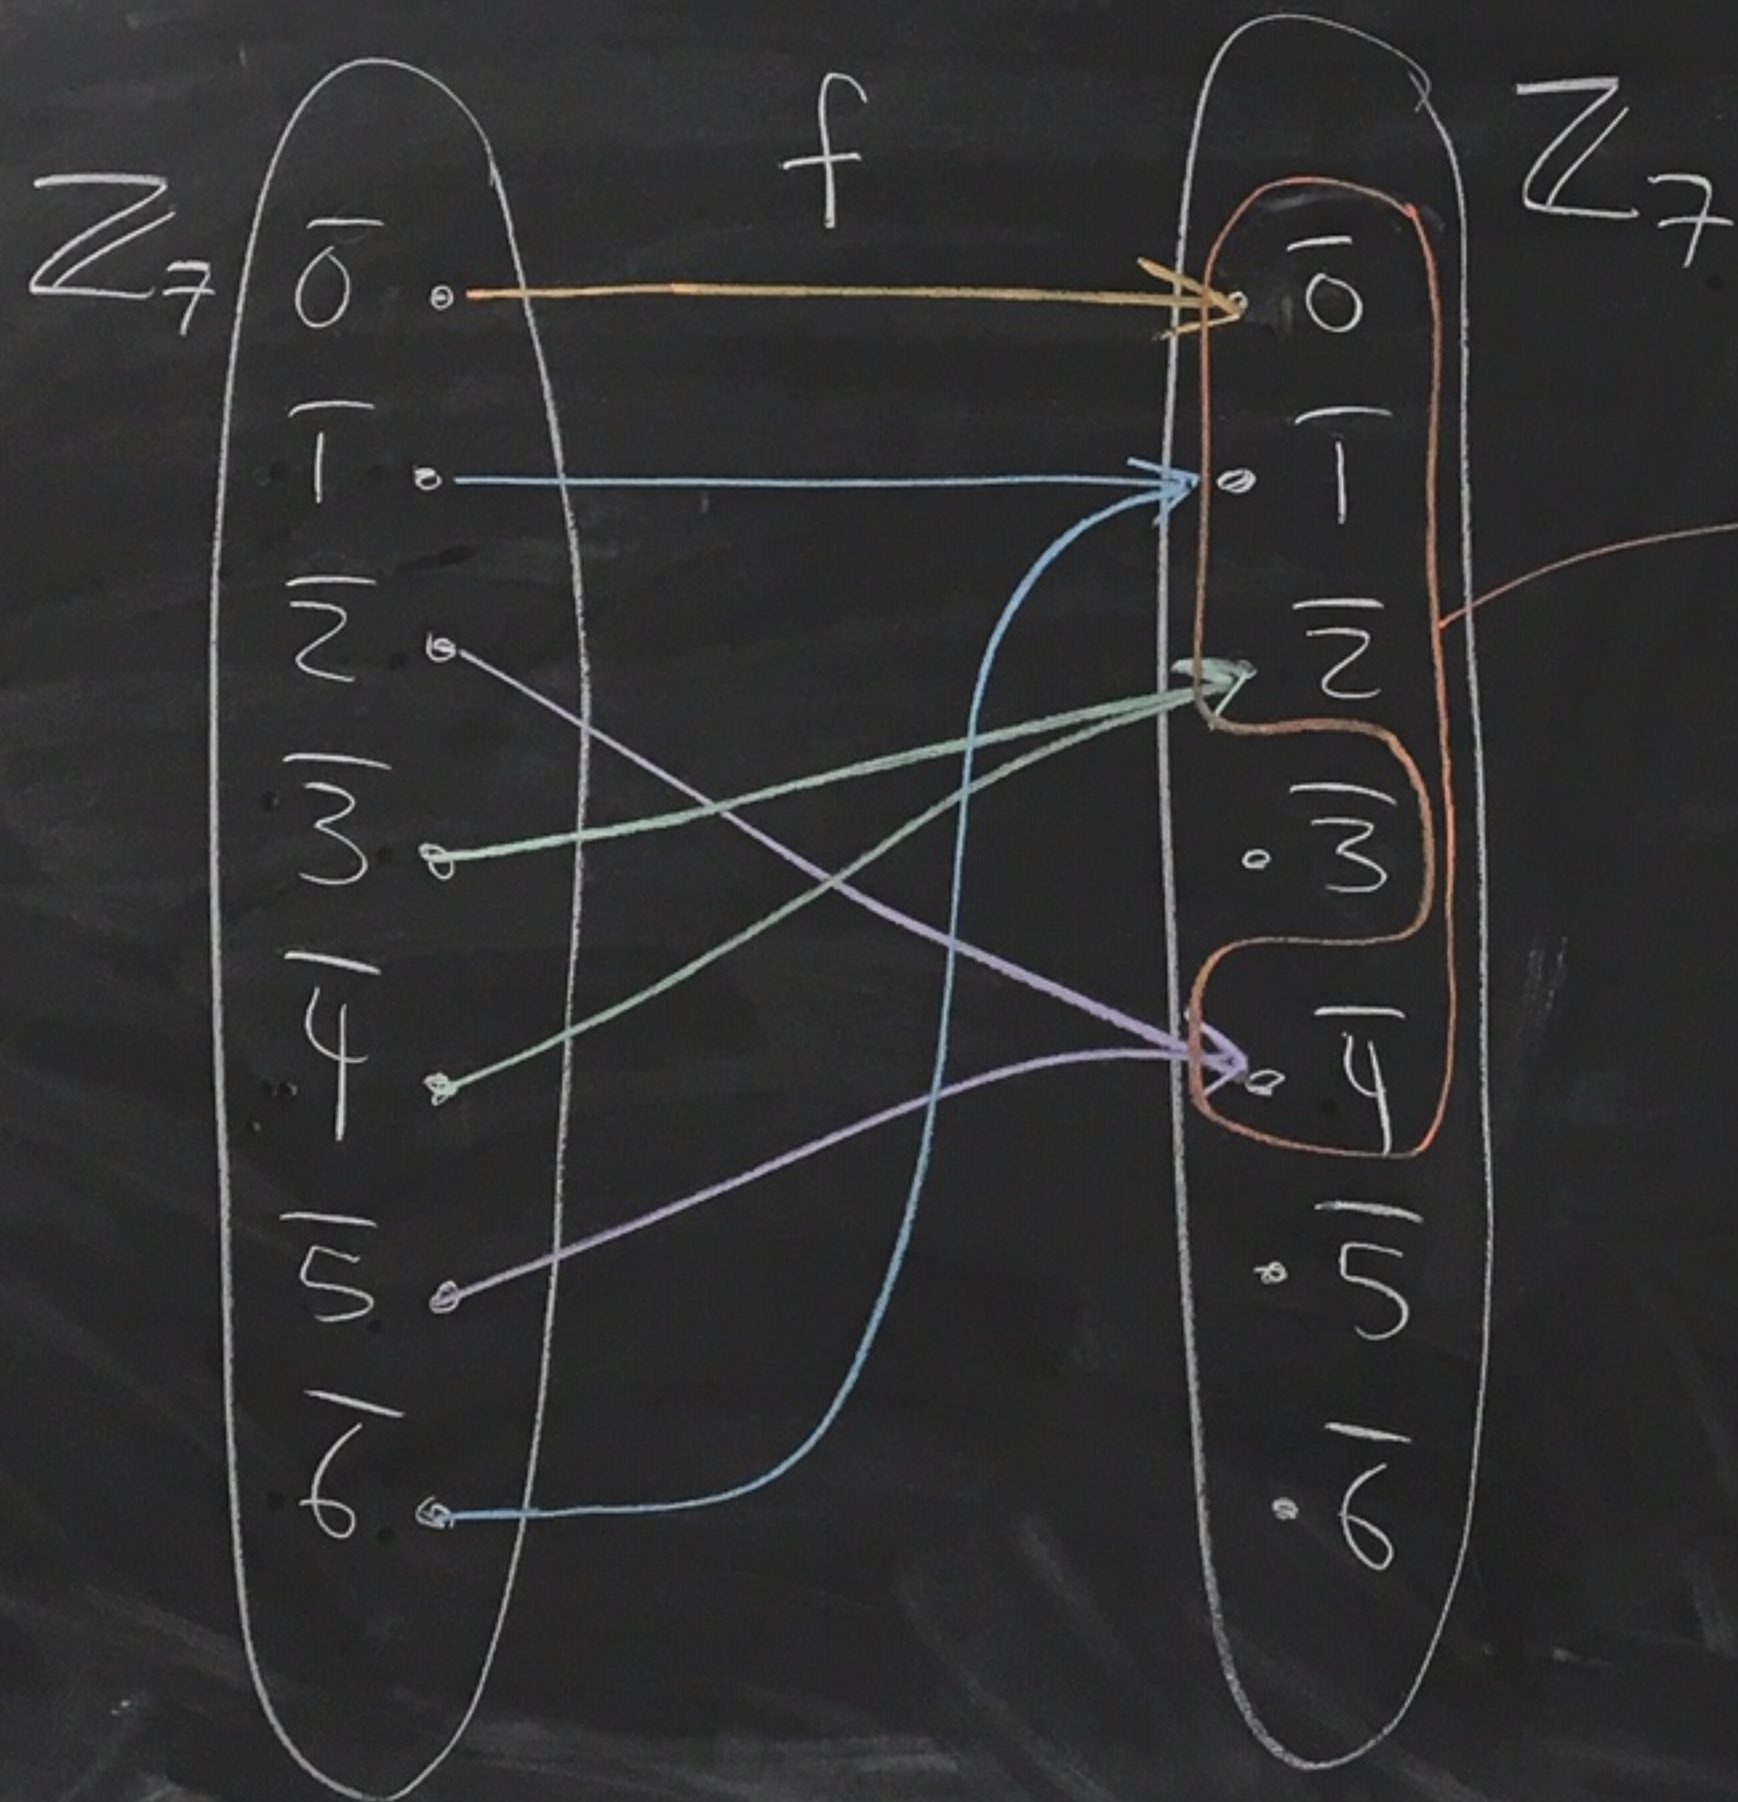 f
ℤ₇
0̅
1̅
2̅
3̅
4̅
5̅
6̅
ℤ₇
0̅
1̅
2̅
3̅
4̅
5̅
6̅